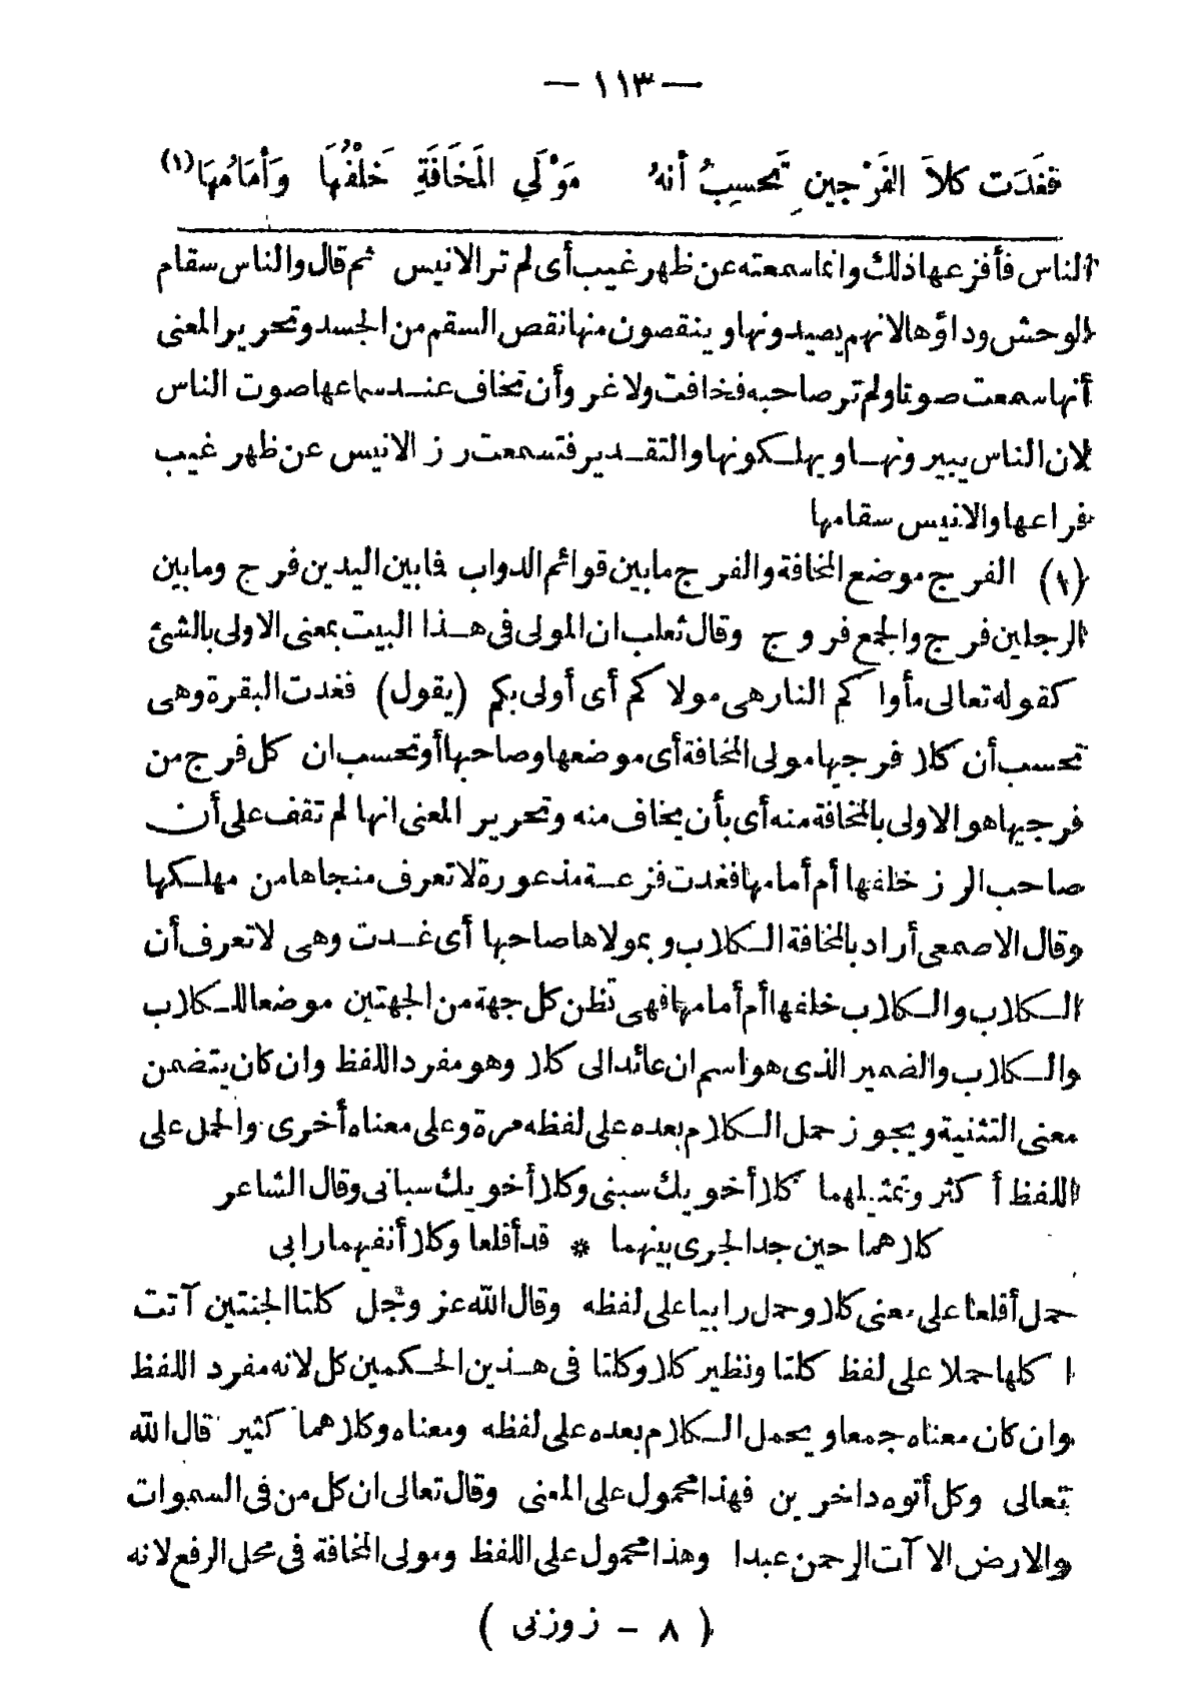 — ١١٣ —
فَغَدَت كلاَ الفَرْجينِ تَحسِبُ أنهُ مَوْلَي المَخَافَةِ خَلْفُهَا وَأمَامُهَا(١)
الناس فأفزعها ذلك وانما سمعته عن ظهر غيب أى لم تر الانيس ثم قال والناس سقام
الوحش وداؤها لانهم يصيدونها وينقصون منها نقص السقم من الجسد وتحرير المعنى
أنها سمعت صوتا ولم تر صاحبه فخافت ولا غرو أن تخاف عند سماعها صوت الناس
لان الناس يبيرونها ويهلكونها والتقدير فتسمعت رز الانيس عن ظهر غيب
فراعها والانيس سقامها
(١) الفرج موضع المخافة والفرج مابين قوائم الدواب فابين اليدين فرج ومابين
الرجلين فرج والجمع فروج وقال ثعلب ان المولى فى هذا البيت بمعنى الاولى بالشئ
كقوله تعالى مأواكم النار هى مولاكم أى أولى بكم (يقول) فغدت البقرة وهى
تحسب أن كلا فرجيها مولى المخافة أى موضعها وصاحبها أو تحسب ان كل فرج من
فرجيها هو الاولى بالمخافة منه أى بأن يخاف منه وتحرير المعنى انها لم تقف على أن
صاحب الرز خلفها أم أمامها فغدت فزعة مذعورة لا تعرف منجاها من مهلكها
وقال الاصمعى أراد بالمخافة الكلاب وبمولاها صاحبها أى غدت وهى لا تعرف أن
الكلاب والكلاب خلفها أم أمامها فهى تظن كل جهة من الجهتين موضعا للكلاب
والكلاب والضمير الذى هو اسم ان عائد الى كلا وهو مفرد اللفظ وان كان يتضمن
معنى التثنية ويجوز حمل الكلام بعده على لفظه مرة وعلى معناه أخرى والحمل على
اللفظ أكثر وتمثيلهما كلا أخويك سبنى وكلا أخويك سبانى وقال الشاعر
كلاهما حين جد الجرى بينهما * قد أقلعا وكلا أنفيهما رابى
حمل أقلعا على معنى كلا وحمل رابيا على لفظه وقال الله عز وجل كلتا الجنتين آتت
اكلها حملا على لفظ كلتا ونظير كلا وكلتا فى هذين الحكمين كل لانه مفرد اللفظ
وان كان معناه جمعا ويحمل الكلام بعده على لفظه ومعناه وكلاهما كثير قال الله
تعالى وكل أتوه داخرين فهذا محمول على المعنى وقال تعالى ان كل من فى السموات
والارض الا آت الرحمن عبدا وهذا محمول على اللفظ ومولى المخافة فى محل الرفع لانه
( ٨ – زوزنى )